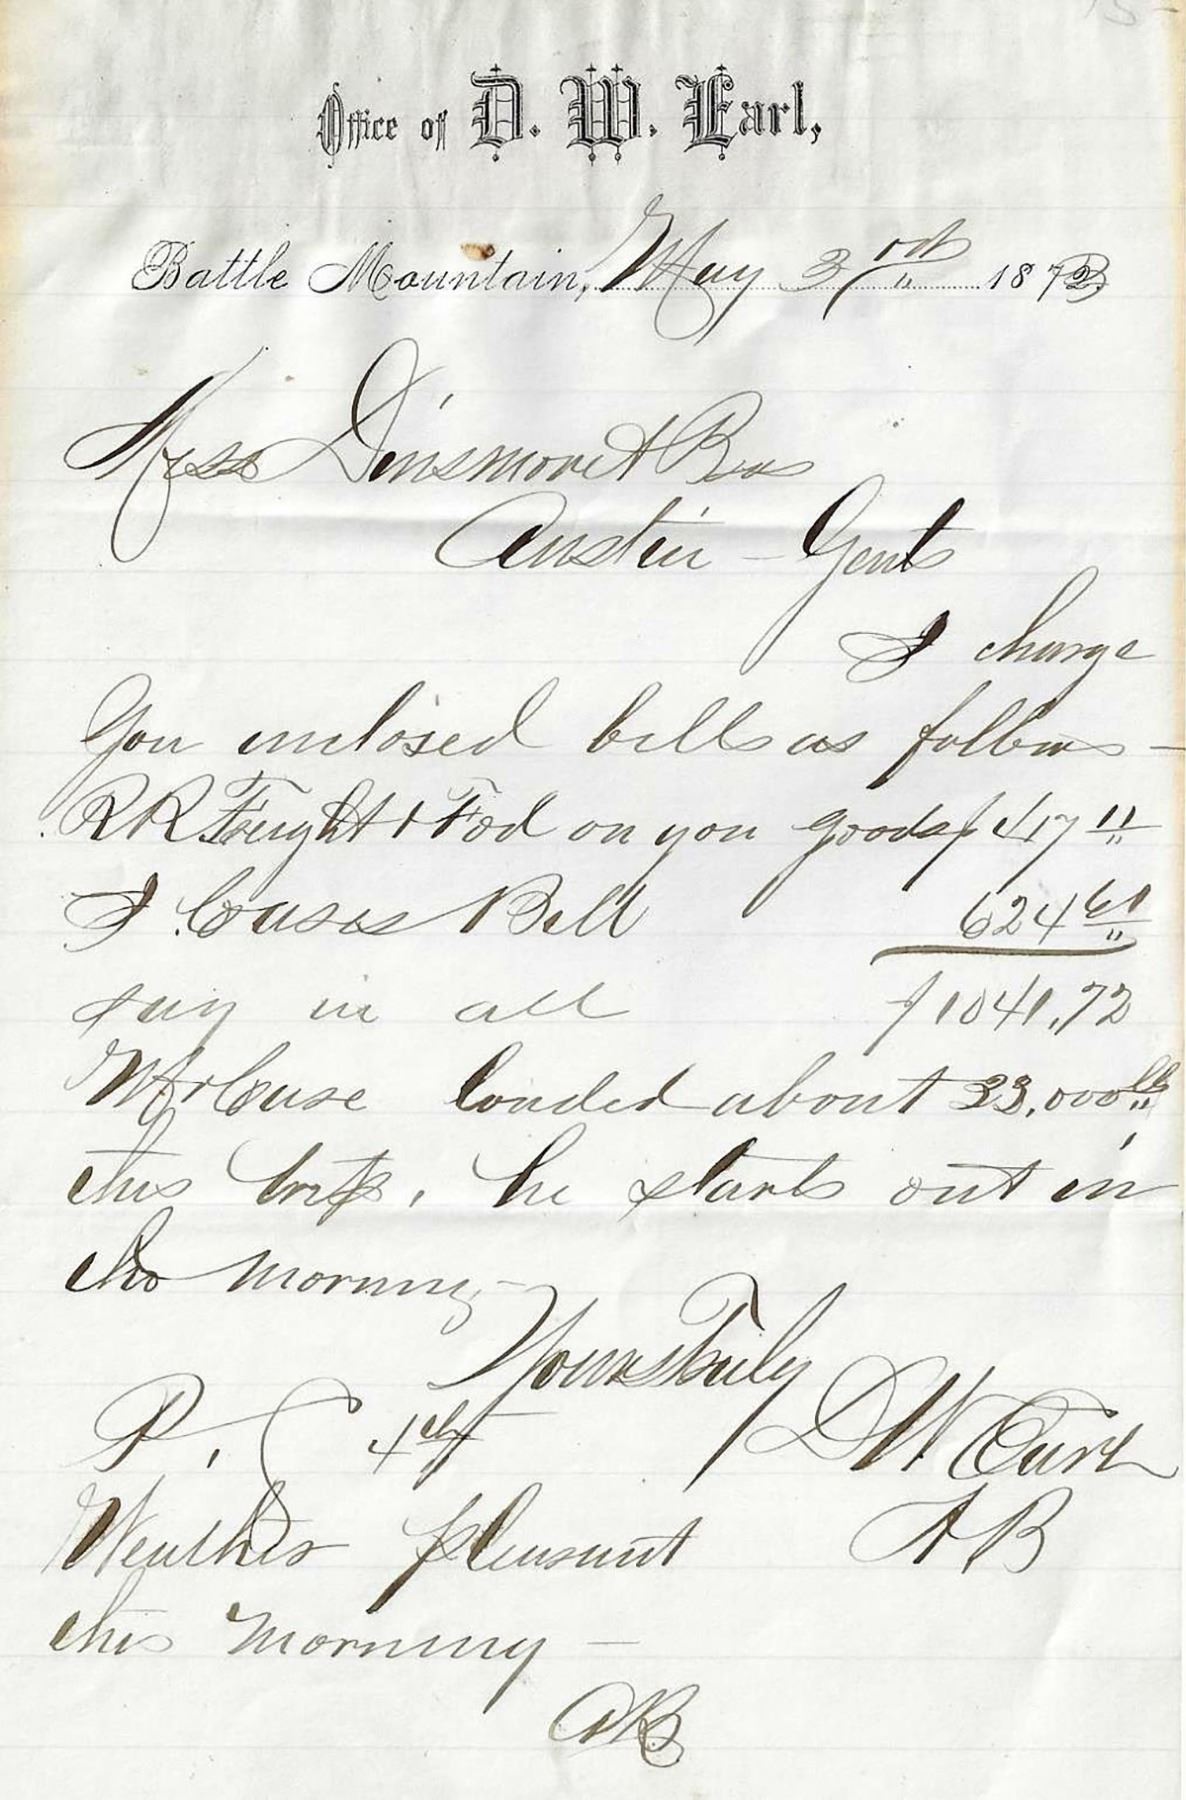 Office of D. W. Earl,
Battle Mountain, May 3rd 1873
Mess Dinsmore & Bro
Austin – Gents
I charge
You inclosed bills as follows –
RR Freight & Fod on you goods $417 11
J Cases Bill 624 61
say in all $1041.72
Mr Case loaded about 33,000 lbs
this trip, he starts out in
the morning –
Yours Truly
D W Earl
P. S 4th
A B
Weather pleasant
this morning –
AB